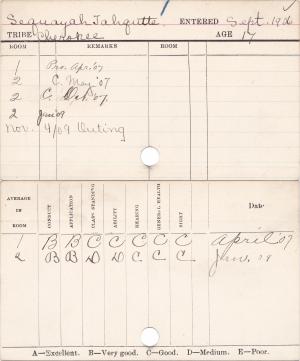 Sequayah Tahquette, ENTERED Sept. 1906
TRIBE Cherokee AGE 17
ROOM REMARKS ROOM
1 Pro. Apr. '07
2 C. May '07
2 C. Oct. '07.
2 Jan '09
Nov. 4/09 Outing
AVERAGE IN ROOM CONDUCT APPLICATION CLASS STANDING ABILITY READING GENERAL HEALTH SIGHT Date
1 B B C C C C C April '07
2 B B D D C C C Jan. '09
A—Excellent. B—Very good. C—Good. D—Medium. E—Poor.